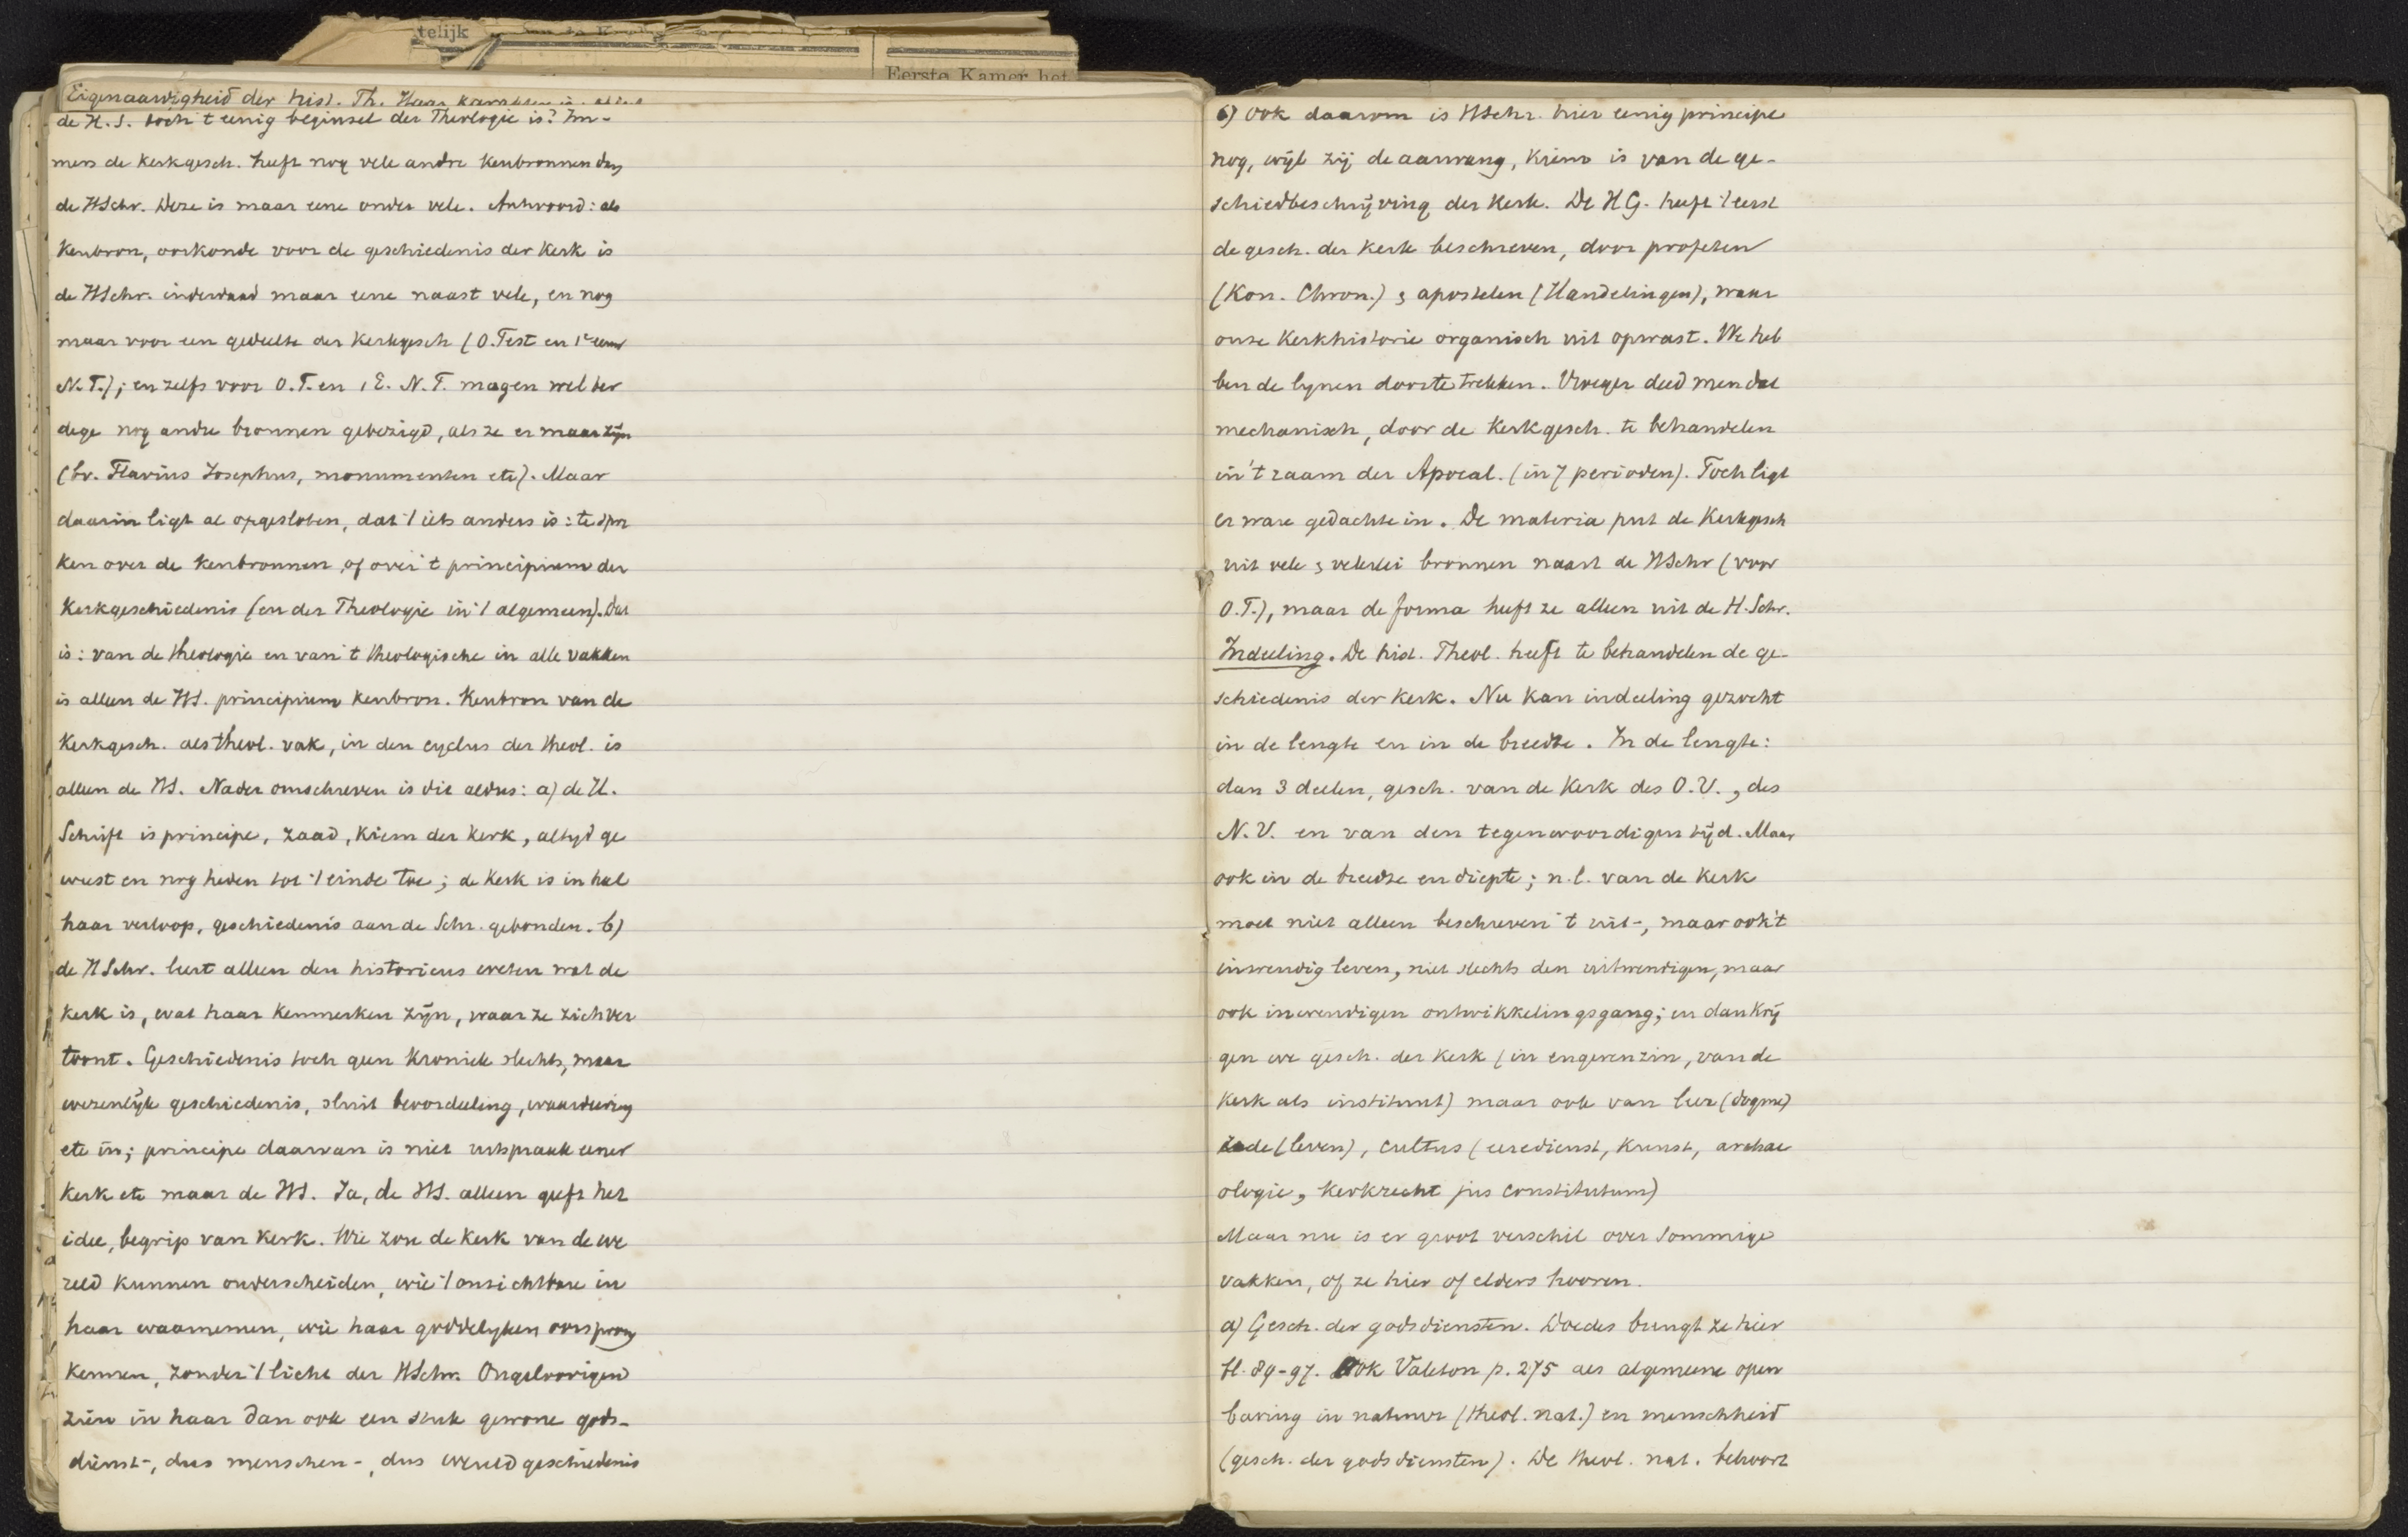 telijk
Eerste Kamer het
Eigenaardigheid der hist. Th. Haar karakter is
de H.S. toch 't eenig beginsel der Theologie is? Im-
mers de Kerkgesch. heeft nog vele andre Kenbronnen dan
de HSchr. Deze is maar eene onder vele. Antwoord: als
Kenbron, oorkonde voor de geschiedenis der Kerk is
de HSchr. inderdaad maar eene naast vele, en nog
maar voor een gedeelte der Kerkgesch (O.Test en 1e eeuw
N.T.); en zelfs voor O.T. en 1 E. N.T. mogen wel ter
dege nog andre bronnen gebezigd, als ze er maar zijn
(bv. Flavius Josephus, monumenten etc). Maar
daarin ligt al opgesloten, dat 't iets anders is: te spre
ken over de Kenbronnen, of over 't principium der
Kerkgeschiedenis (en der Theologie in 't algemeen). Dat
is: van de theologie en van 't theologische in alle vakken
is alleen de HS. principium kenbron. Kenbron van de
Kerkgesch. als theol. vak, in den cyclus der theol. is
alleen de HS. Nader omschreven is dit aldus: a) de H.
Schrift is principe, zaad, Kiem der Kerk, altyd ge
weest en nog heden tot 't einde toe; de Kerk is in heel
haar verloop, geschiedenis aan de Schr. gebonden. b)
de HSchr. leert alleen den historicus weten wat de
Kerk is, wat haar Kenmerken zijn, waar ze zich ver
toont. Geschiedenis toch geen Kroniek slechts, maar
wezenlijk geschiedenis, sluit beoordeeling, waardeering
etc in; principe daarvan is niet uitspraak eener
Kerk etc maar de HS. Ja, de HS. alleen geeft het
idee, begrip van Kerk. Wie zou de Kerk van de we
reld kunnen onderscheiden, wie 't onzichtbare in
haar waarnemen, wie haar goddelyken oorsprong
Kennen, zonder 't licht der HSchr. Ongeloovigen
zien in haar dan ook een stuk gewone gods-
dienst-, dus menschen-, dus wereldgeschiedenis
6) Ook daarom is HSchr. hier eenig principe
nog, wijl zij de aanvang, Kiem is van de ge-
schiedbeschrijving der Kerk. De HG. heeft 't eerst
de gesch. der Kerk beschreven, door profeten
(Kon. Chron.) & apostelen (Handelingen), waar
onze Kerkhistorie organisch uit opwast. We heb
ben de lynen door te trekken. Vroeger deed men dat
mechanisch, door de Kerkgesch. te behandelen
in 't raam der Apocal. (in 7 perioden). Toch ligt
er ware gedachte in. De materia put de Kerkgesch
uit vele & velerlei bronnen naast de HSchr (voor
O.T.), maar de forma heeft ze alleen uit de H. Schr.
Indeeling. De hist. Theol. heeft te behandelen de ge-
schiedenis der Kerk. Nu kan indeeling gezocht
in de lengte en in de breedte. In de lengte:
dan 3 deelen, gesch. van de Kerk des O.V., des
N.V. en van den tegenwoordigen tijd. Maar
ook in de breedte en diepte; n.l. van de Kerk
moet niet alleen beschreven 't uit-, maar ook 't
inwendig leven, niet slechts den uitwendigen, maar
ook inwendigen ontwikkelingsgang; en dan krij
gen we gesch. der Kerk (in engeren zin, van de
Kerk als instituut) maar ook van leer (dogme)
zede (leven), cultus (eeredienst, Kunst, archae
ologie, Kerkrecht jus constitutum)
Maar nu is er groot verschil over sommige
vakken, of ze hier of elders hooren.
a) Gesch. der godsdiensten. Doedes brengt ze hier
bl. 89-97. Ook Valeton p. 275 als algemeene open
baring in natuur (theol. nat.) en menschheid
(gesch. der godsdiensten). De theol. nat. behoort